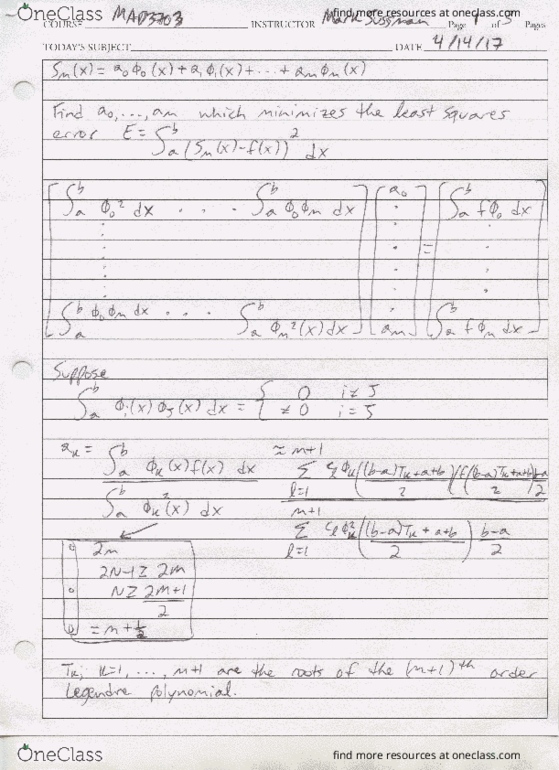 OneClass
find more resources at oneclass.com
COURSE MAD3703 INSTRUCTOR Mark Sussman Page 1 of 5 Pages
TODAY'S SUBJECT DATE 4/14/17
Sₙ(x) = a₀ϕ₀(x) + a₁ϕ₁(x) + ... + aₙϕₙ(x)
Find a₀, ..., aₙ which minimizes the least squares
error E = ∫ₐᵇ (Sₙ(x) - f(x))² dx
[∫ₐᵇ ϕ₀² dx . . . ∫ₐᵇ ϕ₀ϕₙ dx] [a₀] = [∫ₐᵇ fϕ₀ dx]
[∫ₐᵇ ϕ₀ϕₙ dx . . . ∫ₐᵇ ϕₙ²(x) dx] [aₙ] [∫ₐᵇ fϕₙ dx]
Suppose
∫ₐᵇ ϕᵢ(x) ϕⱼ(x) dx = { 0 i ≠ J
≠ 0 i = J
aₖ = ∫ₐᵇ ϕₖ(x) f(x) dx ≈ n+1 Σ l=1 cₗ ϕₖ((b-a)Tₖ + a+b / 2) f((b-a)Tₖ + a+b / 2) b-a / 2
∫ₐᵇ ϕₖ²(x) dx n+1 Σ l=1 cₗ ϕₖ²((b-a)Tₖ + a+b / 2) b-a / 2
2n
2N-1 ≥ 2n
N ≥ 2n+1 / 2
= n + ½
Tₖ; k=1, ..., n+1 are the roots of the (n+1)th order
Legendre polynomial.
OneClass
find more resources at oneclass.com